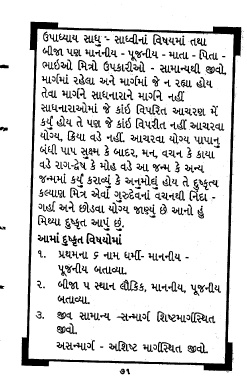 ઉપાધ્યાય સાધુ - સાધ્વીનાં વિષયમાં તથા
બીજા પણ માનનીય - પૂજનીય - માતા - પિતા -
ભાઇઓ મિત્રો ઉપકારીઓ - સામાન્યથી જીવો,
માર્ગમાં રહેલા અને માર્ગમાં જે ન રહ્યા હોય
તેવા માર્ગને સાધનારાને માર્ગને નહીં
સાધનારાઓમાં જે કાંઇ વિપરિત આચરણ મેં
કર્યું હોય તે પણ જે કાંઇ વિપરીત નહીં આચરવા
યોગ્ય, ક્રિયા વડે નહીં. આચરવા યોગ્ય પાપાનુ
બંધી પાપ સુક્ષ્મ કે બાદર, મન, વચન કે કાયા
વડે રાગ-દ્વેષ કે મોહ વડે આ જન્મ કે અન્ય
જન્મમાં કર્યું કરાવ્યું કે અનુમોદ્યું હોય તે દુષ્કૃત્ય
કલ્યાણ મિત્ર એવાં ગુરુદેવનાં વચનથી નિંદા -
ગર્હા અને છોડવા યોગ્ય જાણ્યું છે આનો હું
મિથ્યા દુષ્કૃત આપું છું.
આમાં દુષ્કૃત વિષયોમાં
૧. પ્રથમના ૬ નામ ધર્મી- માનનીય -
પૂજનીય બતાવ્યા.
૨. બીજા ૫ સ્થાન લૌકિક, માનનીય, પૂજનીય
બતાવ્યા.
૩. જીવ સામાન્ય -સન્માર્ગ શિષ્ટમાર્ગસ્થિત
જીવો.
અસન્માર્ગ - અશિષ્ટ માર્ગસ્થિત જીવો.
૭૧